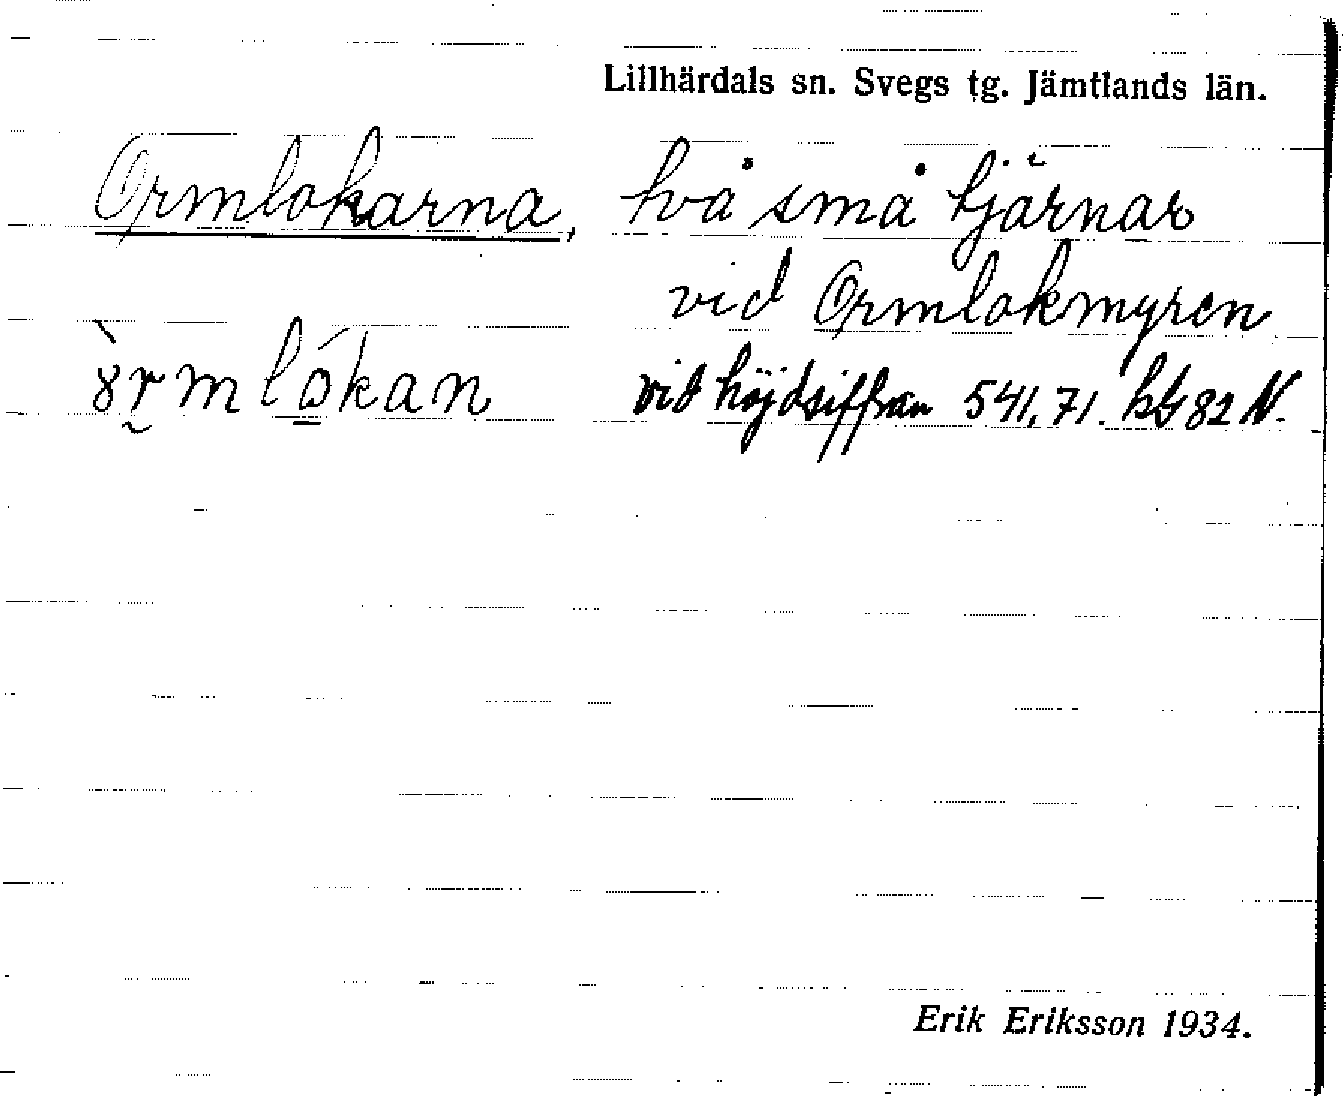 Lillhärdals sn. Svegs tg. Jämtlands län.
Ormlokarna, två små tjärnar
vid Ormlokmyren
vid höjdsiffran 541,71. kbl 82 N.
Erik Eriksson 1934.